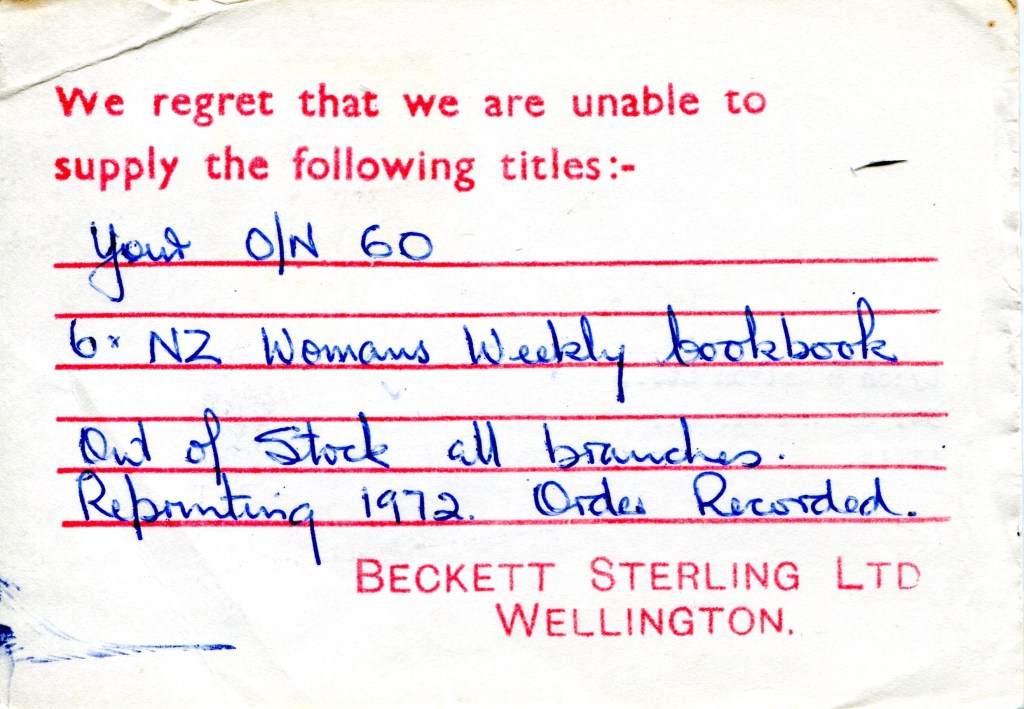 We regret that we are unable to
supply the following titles:-
Your O/N 60
6x NZ Womans Weekly bookbook
Out of Stock all branches.
Reprinting 1972. Order Recorded.
BECKETT STERLING LTD
WELLINGTON.